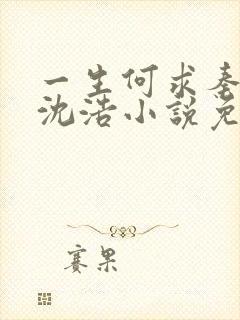 一生何求秦
沈浩小說免
赛果